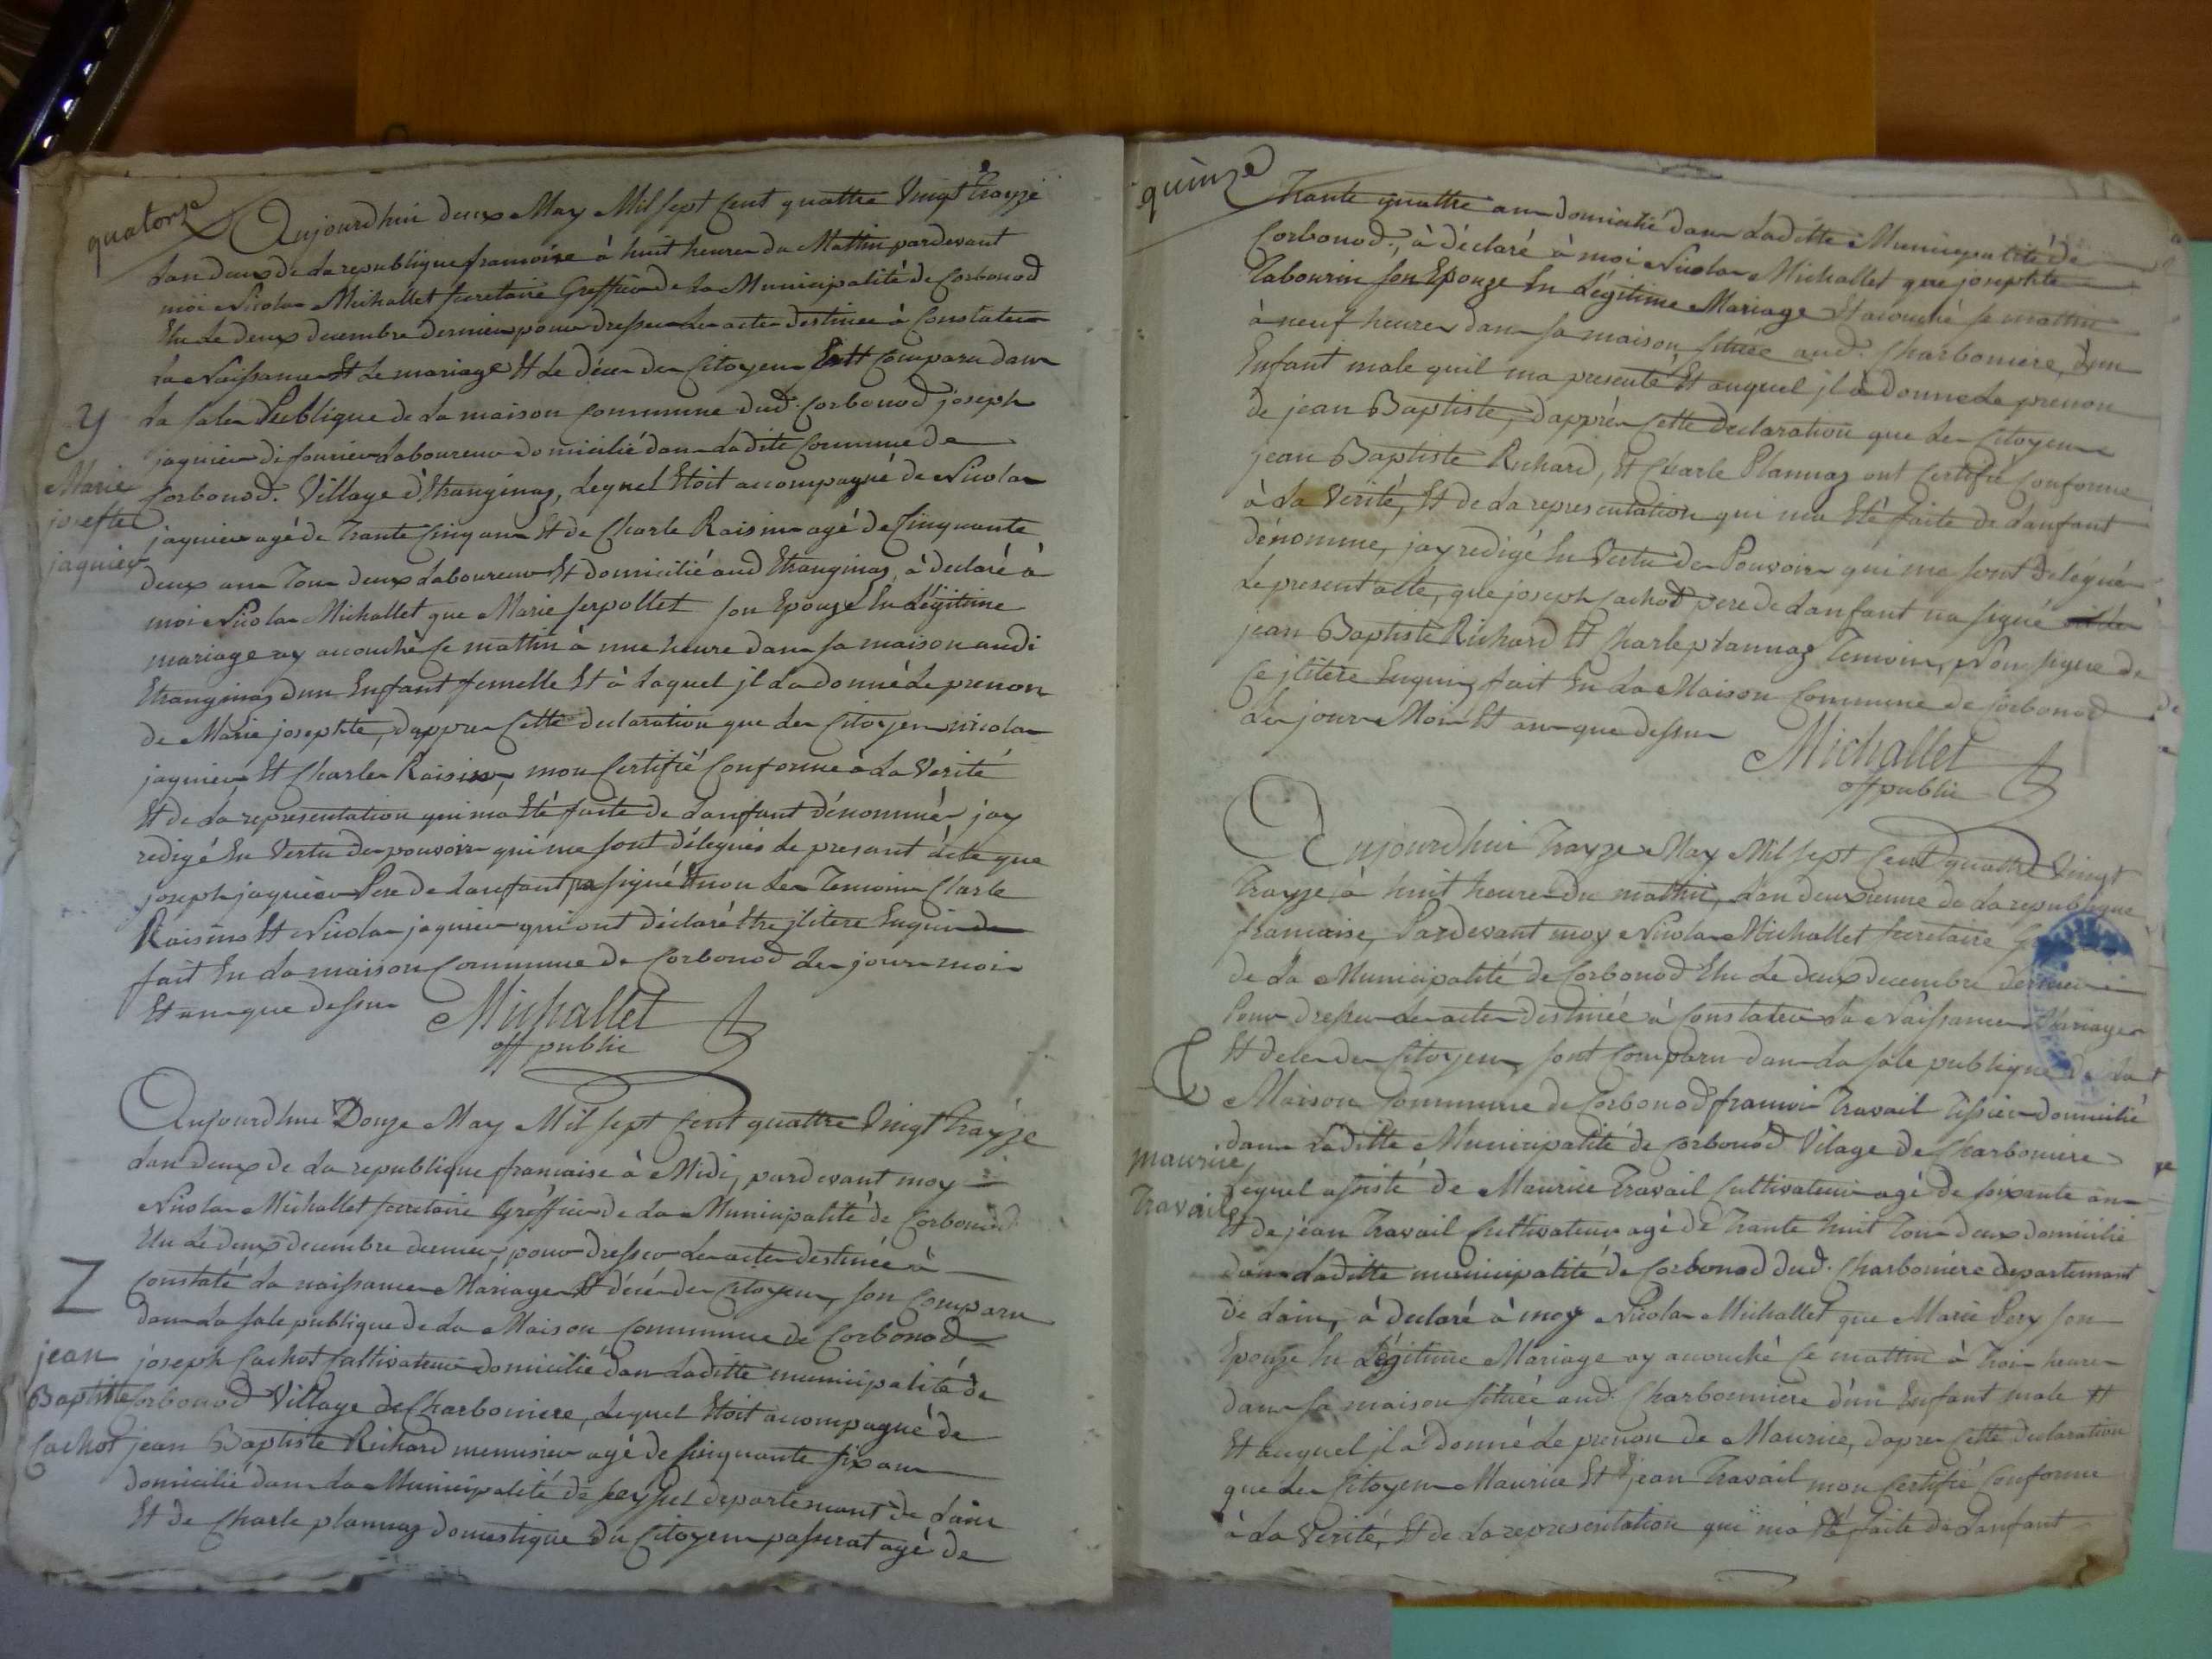 quatorze
Aujourdhui deux May Mil sept Cent quattre Vingt Trayze
Lan deux de La republique francoise à huit heures du Mattin pardevant
moi Nicolas Michallet secretaire Greffier de La Municipalité de Corbonod
Elu Le deux decembre dernier pour dresser Les actes destinee à Constater
La Naissances Et Le mariage Et Le déces des Citoyens Est Comparu dans
La sale Publique de La maison Commune dud. Corbonod joseph
jaquier laboureur domicilié dans Ladite Commune de
Corbonod. Village d'Etranginaz, Lequel Etoit accompagné de Nicolas
jaquier agé de Trante Cinq ans Et de Charle Raisin agé de Cinquante
deux ans Tous deux Laboureur Et domicilié aud Etranginaz à declaré à
moi Nicolas Michallet que Marie serpollet son Epouze En Légitime
mariage ay acouché Ce mattin à une heure dans sa maison audi
Etranginaz dun Enfant femelle Et à Laquel jl La donné Le prenon
de Marie josephte, dappres Cette declaration que Les Citoyens nicolas
jaquier Et Charles Raisin, mon Certifié Conforme à La Verité
Et de La representation qui ma Eté faite de Lanfant dénommée jay
redigé En Vertu des pouvoirs qui me sont délegués Le presant acte que
joseph jaquier Pere de Lanfant na signé Et non Les Temoins Charle
Raisins Et Nicolas jaquier qui ont déclaré Etre jlitere Enquis de
fait En La maison Commune de Corbonod Les jours mois
Et an que dessus Michallet
off public
y
Marie
josefte
jaquier
Aujourdhui Douze May Mil sept Cent quattre Vingt Trayze
Lan deux de La republique francaise à Midi, pardevant moy
Nicolas Michallet secretaire Gréffier de La Municipalité de Corbonod
Elu Le deux decembre dernier, pour dresser Les actes destinée à
Constaté La naissances Mariages Et décés des Citoyens, son Comparu
dans La sale publique de La Maison Commune de Corbonod
joseph Cachot Cultivateur domicilié dans Laditte municipalité de
Corbonod Village de Charboniere, Lequel Etoit accompagné de
jean Baptiste Richard menusier agé de Cinquante six ans
domicilié dans La Municipalité de seyssel departemant de Lain
Et de Charle plannaz domestique du Citoyen passerat agé de
Z
jean
Baptiste
Cachot
quinze
Trante quattre ans domicilié dans Laditte Municipalité de
Corbonod., à déclaré à moi Nicolas Michallet que josephte
Tabourin son Epouze En Légitime Mariage Et acouché se mattin
à neuf heures dans sa maison située aud. Charboniere, dun
Enfant male quil ma presenté Et auquel jl à donné Le prenon
de jean Baptiste, dapprès Cette declaration que Les Citoyens
jean Baptiste Richard, Et Charle Plannaz ont Certifié Conforme
à La Verité, Et de La representation qui ma Eté faite de Lanfant
dénomme, jay redigé En Vertu des Pouvoirs qui me sont delegués
Le present acte, que joseph Cachod pere de Lanfant na signé
jean Baptiste Richard Et Charle plannaz Temoins, Non signe de
Ce jlitere Enquis, fait En La Maison Commune de Corbonod
Les jours Mois Et an que dessus
Michallet
off public
Aujourdhui Trayze May Mil sept Cent quattre Vingt
Trayze à huit heures du mattin, Lan deuxieme de La republique
francaise, Pardevant moy Nicolas Michallet secretaire
de La Municipalité de Corbonod Elu Le deux decembre dernier
Pour dresser Les actes destinée à Constater La Naissances Mariages
Et deces des Citoyens, sont Comparu dans La sale publique de La
Maison Commune de Corbonod francois Travail Tissier domicilié
dans Laditte Municipalité de Corbonod Vilage de Charboniere
Lequel assisté de Maurice Travail Cultivateur agé de soixante ans
Et de jean Travail Cultivateur agé de Trante huit Tous deux domicilié
dans Laditte municipalité de Corbonod dud. Charboniere departemant
de Lain, à declaré à moy Nicolas Michallet que Marie Pery son
Epouze En Légitime Mariage ay acouché Ce mattin à Trois heures
dans sa maison située aud. Charbonniere d'un Enfant male Et
Et auquel jl à donné Le prenon de Maurice, dapres Cette declaration
que Les Citoyens Maurice Et jean Travail mon Certifié Conforme
à La Verité, Et de La representation qui m'à Eté faite de Lanfant
Maurice
Travail